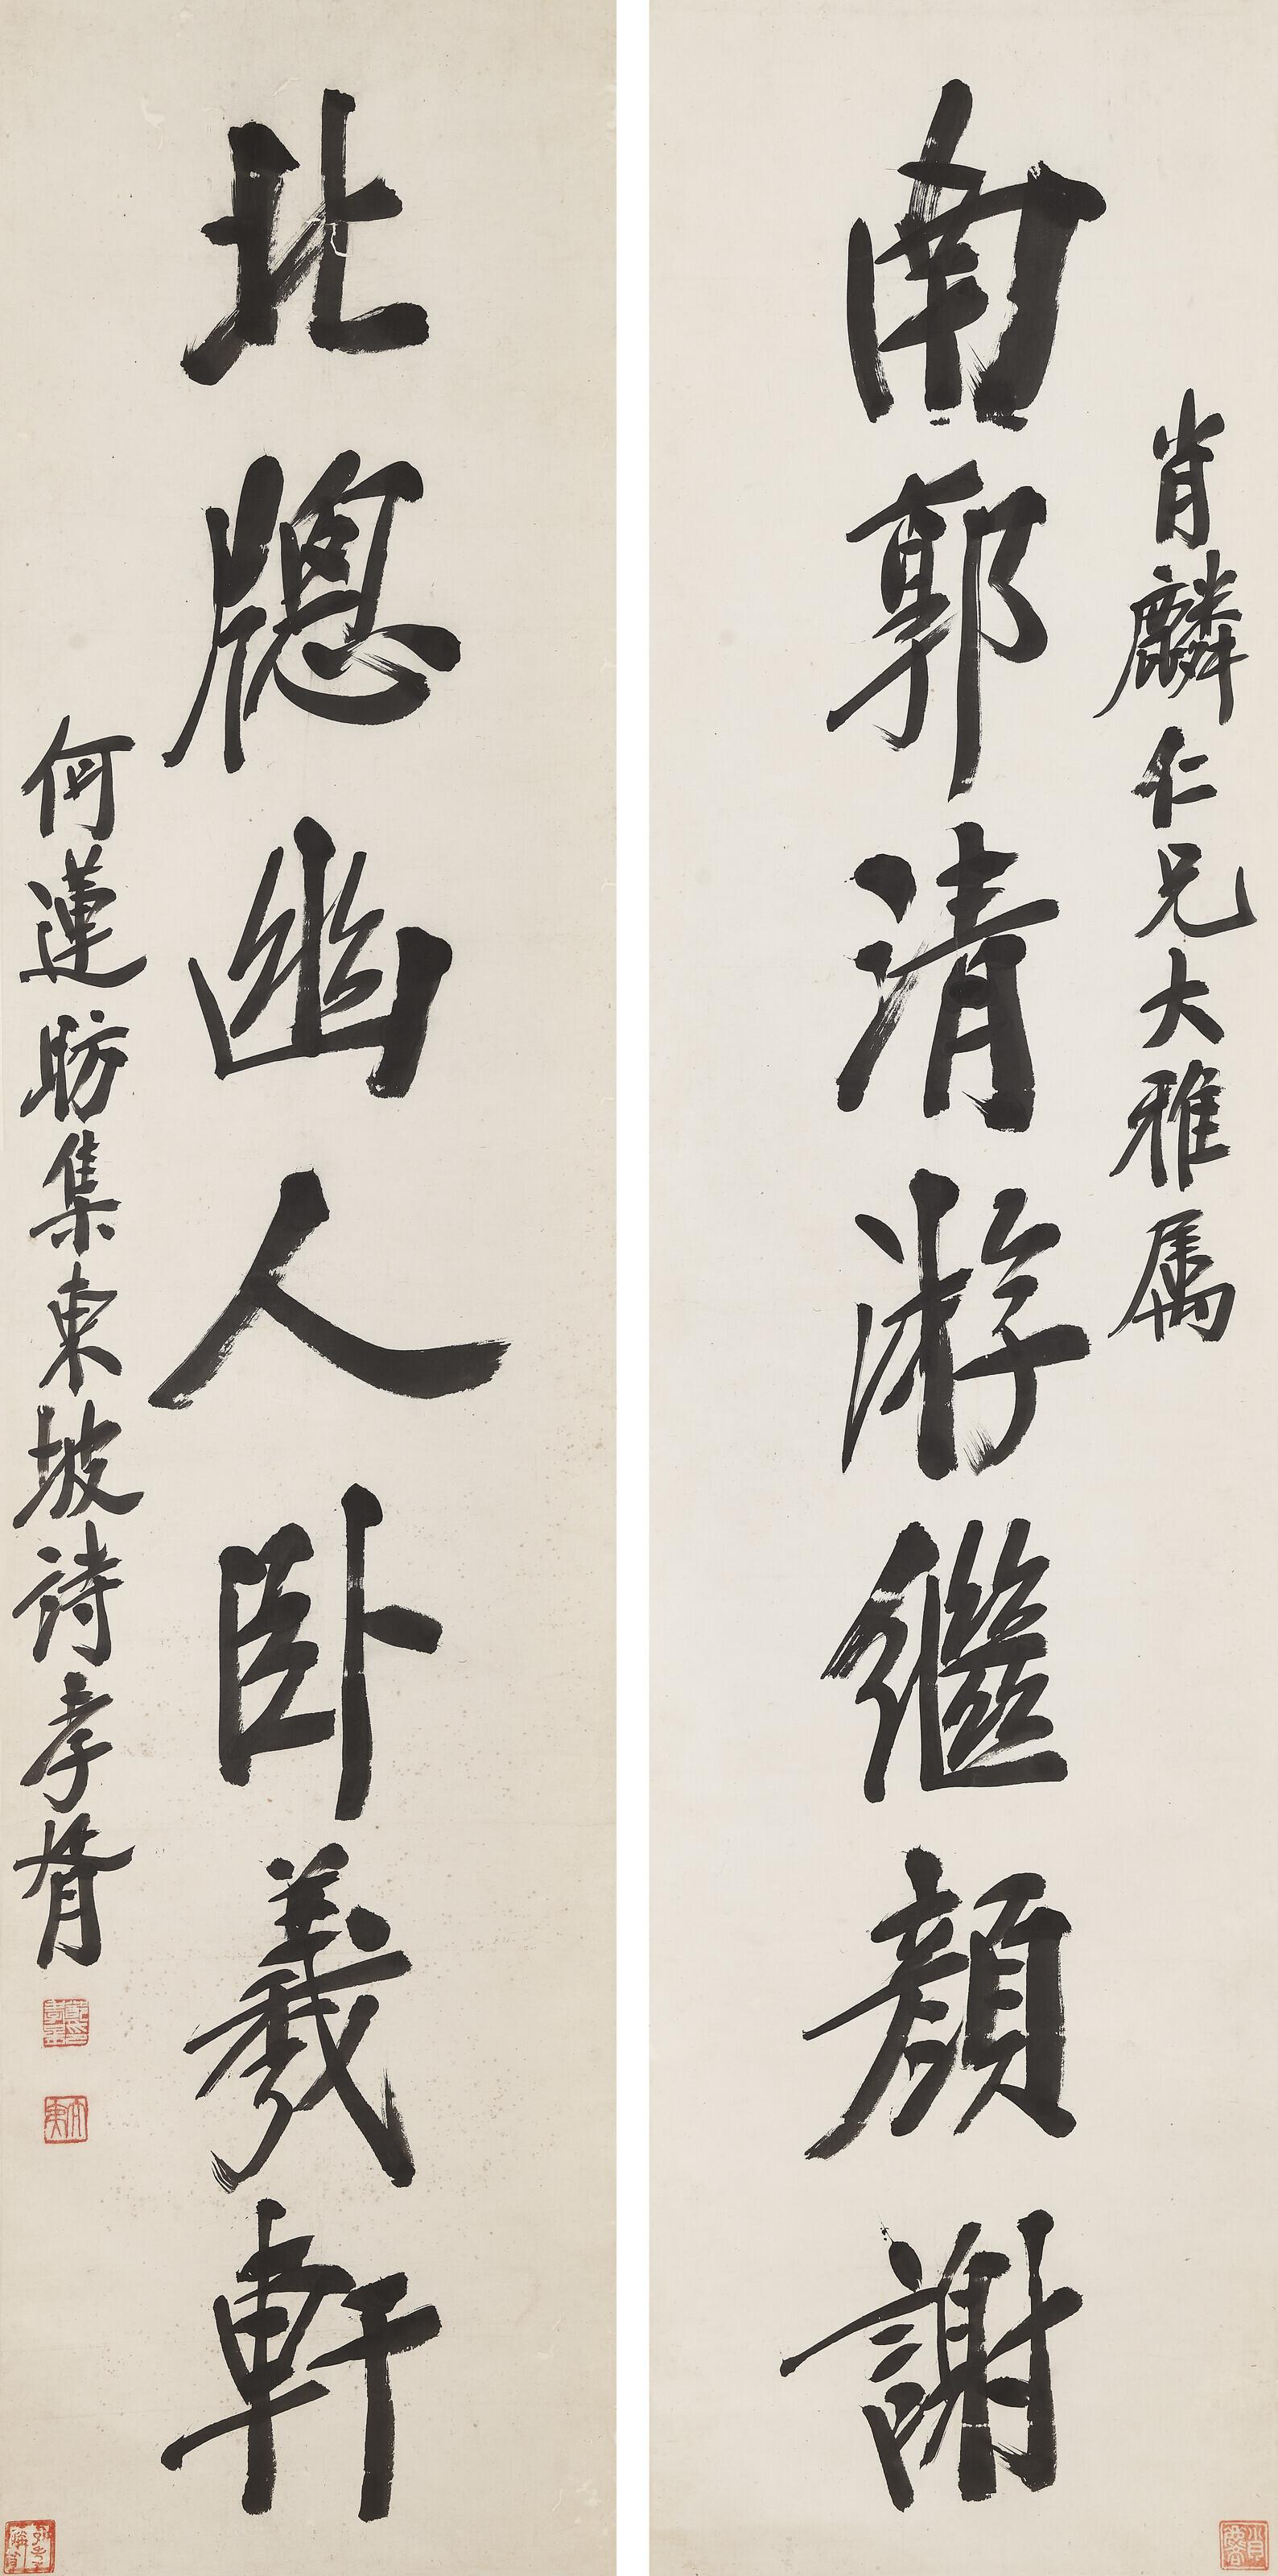 肖麟仁兄大雅属
南郭清游繼顏謝
北牕幽人卧羲軒
何蓮昉集東坡詩孝胥